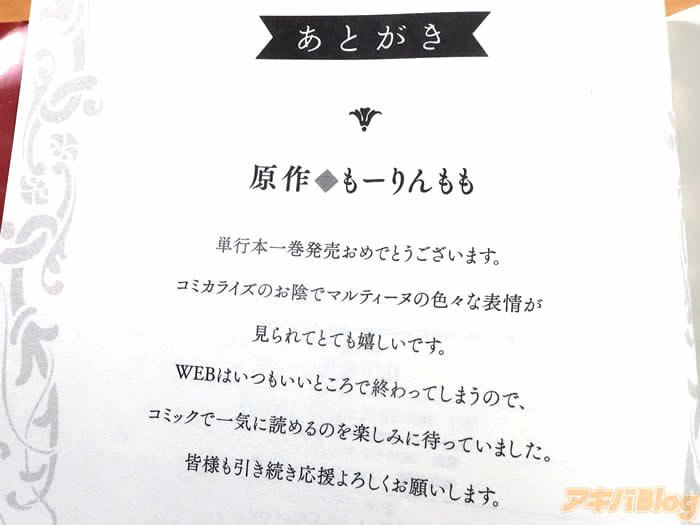 あとがき
原作◆もーりんもも
単行本一巻発売おめでとうございます。
コミカライズのお陰でマルティーヌの色々な表情が
見られてとても嬉しいです。
WEBはいつもいいところで終わってしまうので、
コミックで一気に読めるのを楽しみに待っていました。
皆様も引き続き応援よろしくお願いします。
アキバBlog